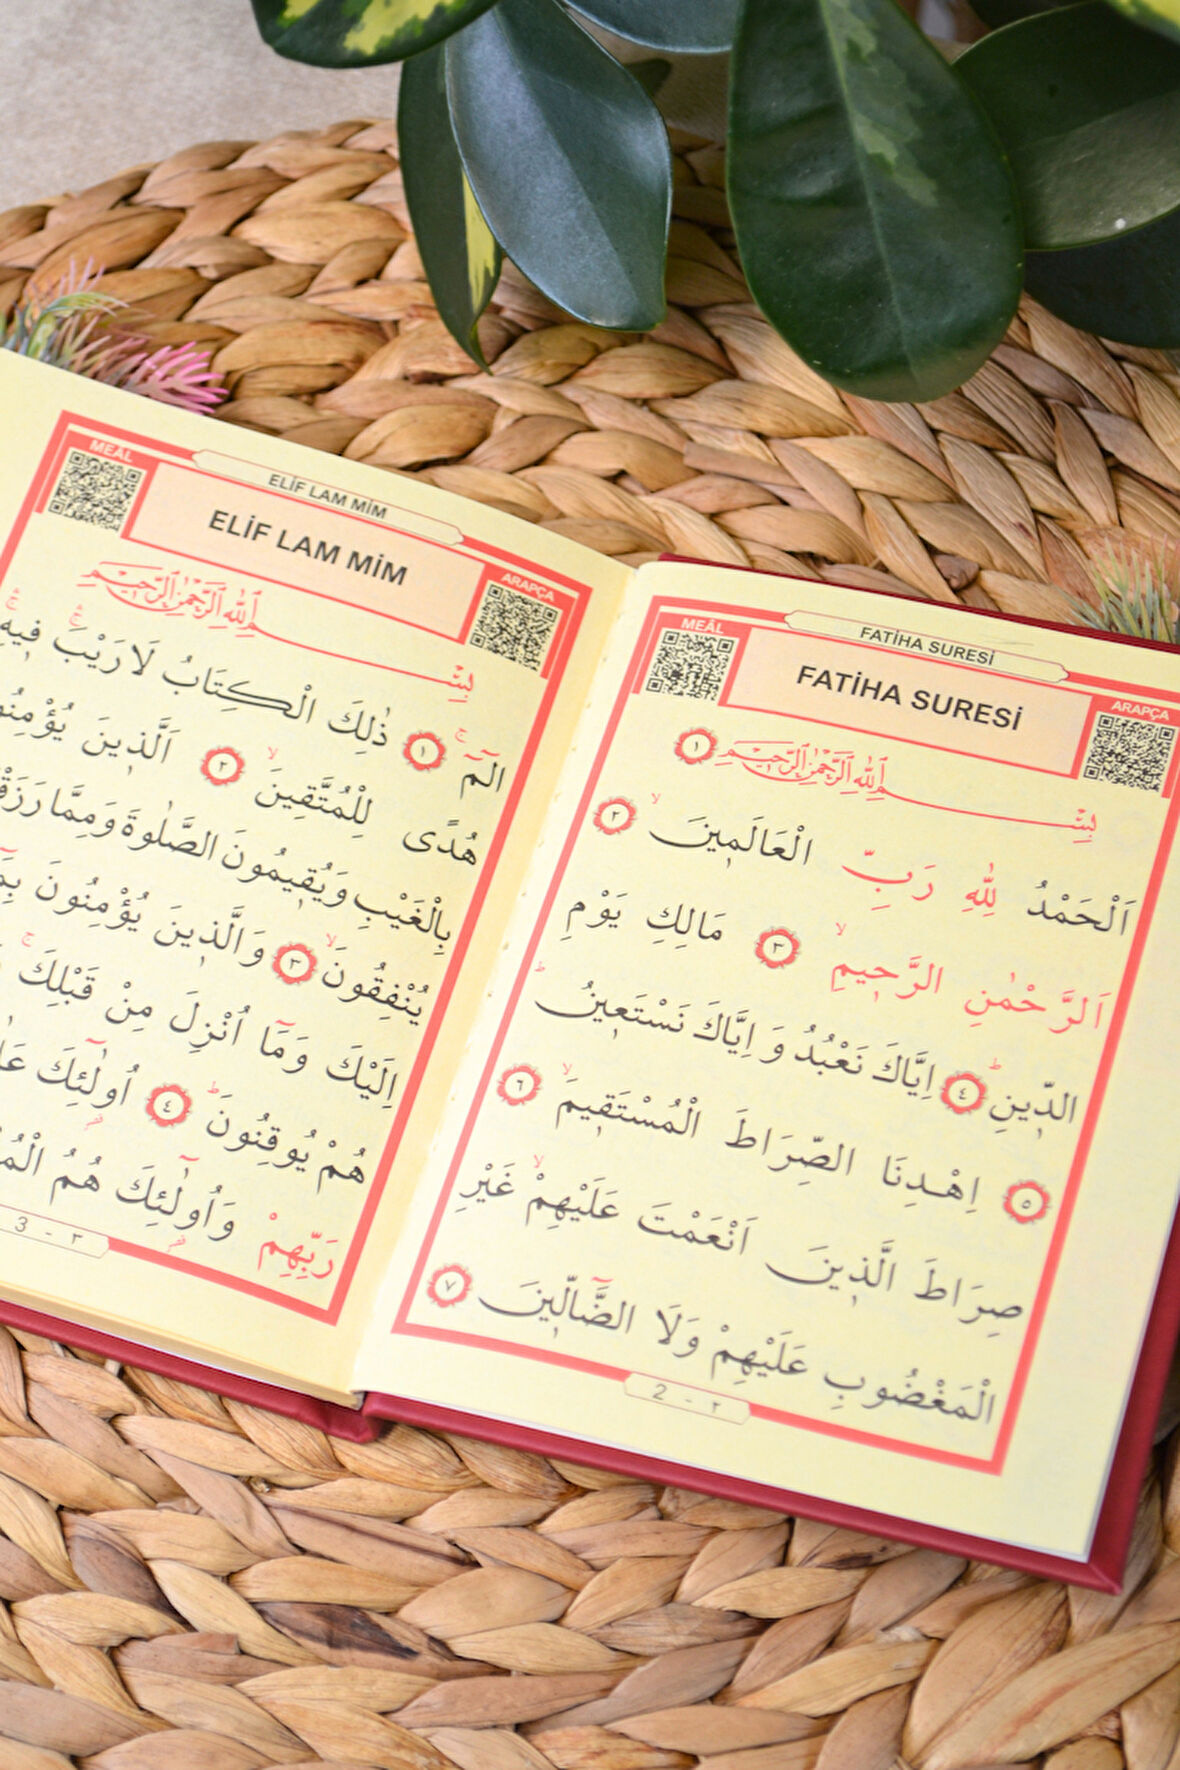 FATİHA SURESİ
MEÂL
FATİHA SURESİ
ARAPÇA
بِسْمِ اللهِ الرَّحْمٰنِ الرَّحِيمِ ١
اَلْحَمْدُ لِلّٰهِ رَبِّ الْعَالَمِينَ ٢
اَلرَّحْمٰنِ الرَّحِيمِ ٣ مَالِكِ يَوْمِ
الدِّينِ ٤ اِيَّاكَ نَعْبُدُ وَ اِيَّاكَ نَسْتَعِينُ
٥ اِهْدِنَا الصِّرَاطَ الْمُسْتَقِيمَ ٦
صِرَاطَ الَّذِينَ اَنْعَمْتَ عَلَيْهِمْ غَيْرِ
الْمَغْضُوبِ عَلَيْهِمْ وَلَا الضَّٓالِّينَ ٧
2 - ٢
ELİF LAM MİM
MEÂL
ELİF LAM MİM
ARAPÇA
بِسْمِ اللهِ الرَّحْمٰنِ الرَّحِيمِ
الٓمٓ ١ ذٰلِكَ الْكِتَابُ لَا رَيْبَ فِيهِ
هُدًى لِلْمُتَّقِينَ ٢ اَلَّذِينَ
بِالْغَيْبِ وَيُقِيمُونَ الصَّلٰوةَ وَمِمَّا
يُنْفِقُونَ ٣ وَالَّذِينَ يُؤْمِنُونَ
اِلَيْكَ وَمَٓا اُنْزِلَ مِنْ قَبْلِكَ
هُمْ يُوقِنُونَ ٤ اُولٰٓئِكَ
رَبِّهِمْ وَاُولٰٓئِكَ هُمُ
3 - ٣